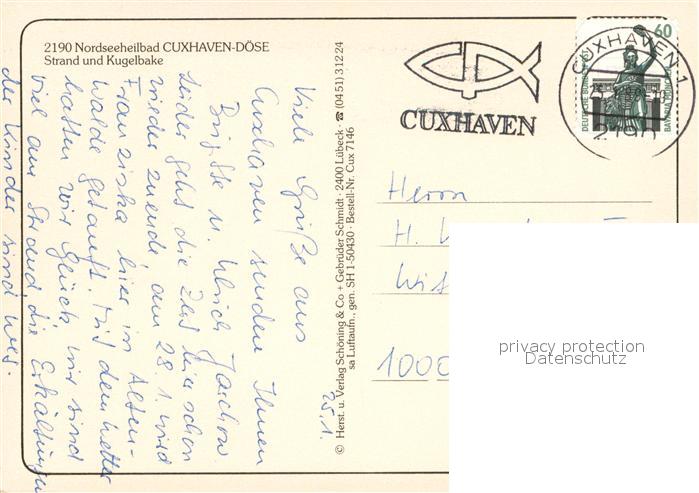 2190 Nordseeheilbad CUXHAVEN-DÖSE
Strand und Kugelbake
CUXHAVEN
CUXHAVEN 1
2190
60
DEUTSCHE BUNDESPOST
BAVARIA MÜNCHEN
25.1.
Viele Grüße aus
Cuxhaven senden Ihnen
Brigitte u. Ulrich
Leider geht die Zeit hier schon
wieder zuende, am 28.1. wird
Franziska hier in Alten-
walde getauft. Mit dem Wetter
hatten wir Glück, wir sind
viel am Strand, die Erkältungen
der Kinder sind weg.
© Herst. u. Verlag Schöning & Co + Gebrüder Schmidt · 2400 Lübeck · ☎ (04 51) 3 12 24
sa Luftaufn., gen. SH 1-50430 · Bestell-Nr. Cux 7146
Herrn
H.
1000
privacy protection
Datenschutz